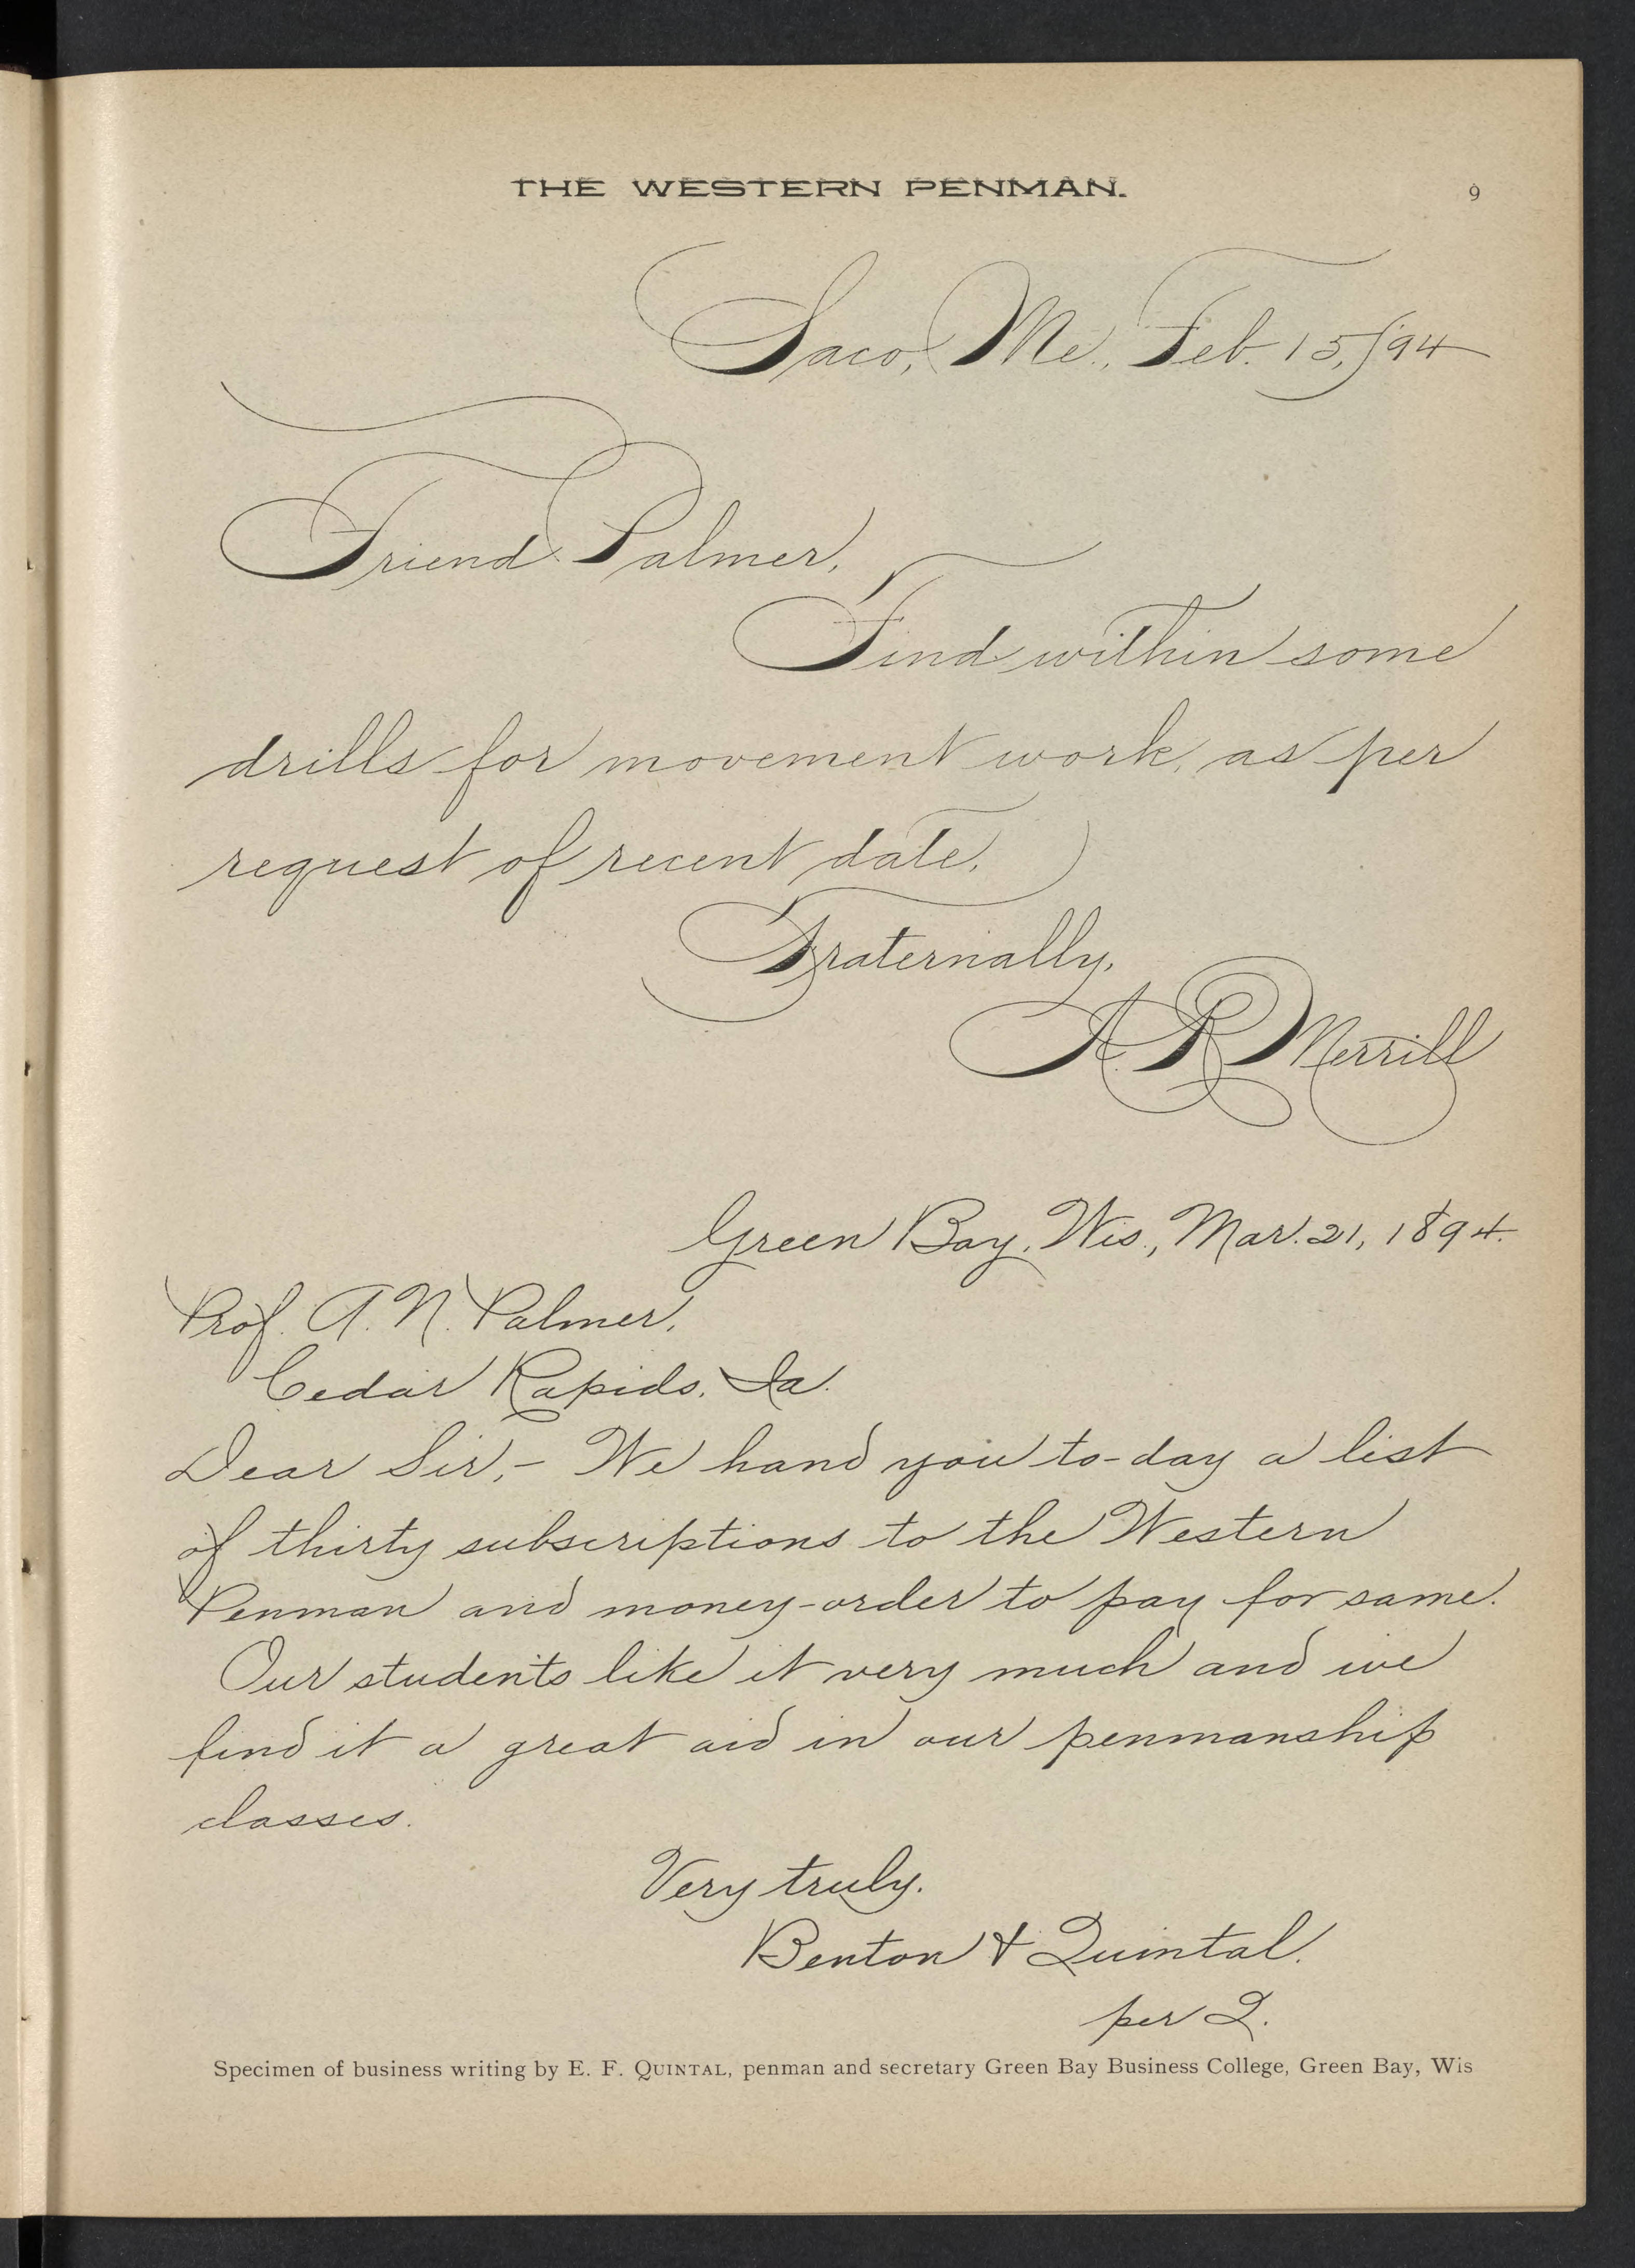 THE WESTERN PENMAN.
9
Saco, Me., Feb. 15, '94
Friend Palmer,
Find within some
drills for movement work, as per
request of recent date.
Fraternally,
A. R. Merrill
Green Bay, Wis., Mar. 21, 1894.
Prof. A. N. Palmer,
Cedar Rapids, Ia.
Dear Sir,- We hand you to-day a list
of thirty subscriptions to the Western
Penman and money-order to pay for same.
Our students like it very much and we
find it a great aid in our penmanship
classes.
Very truly,
Benton & Quintal.
per Q.
Specimen of business writing by E. F. QUINTAL, penman and secretary Green Bay Business College, Green Bay, Wis